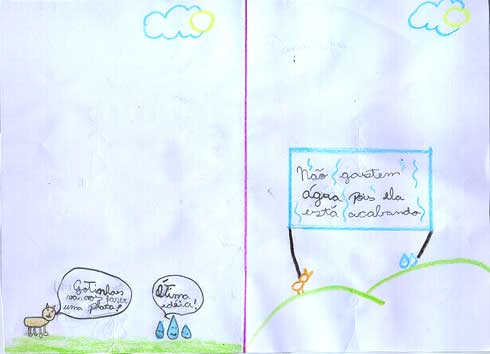 Gotinhas
vamos fazer
uma placa!
Ótima
idéia!
Não gastem
água pois ela
está acabando